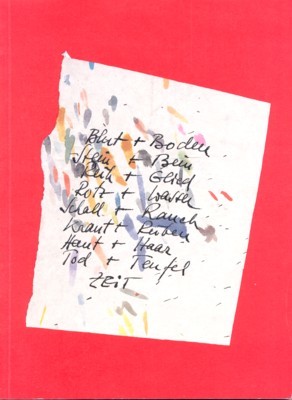 Blut + Boden
Stein + Bein
Reih + Glied
Rotz + Wasser
Schall + Rauch
Kraut + Rüben
Haut + Haar
Tod + Teufel
ZEIT.